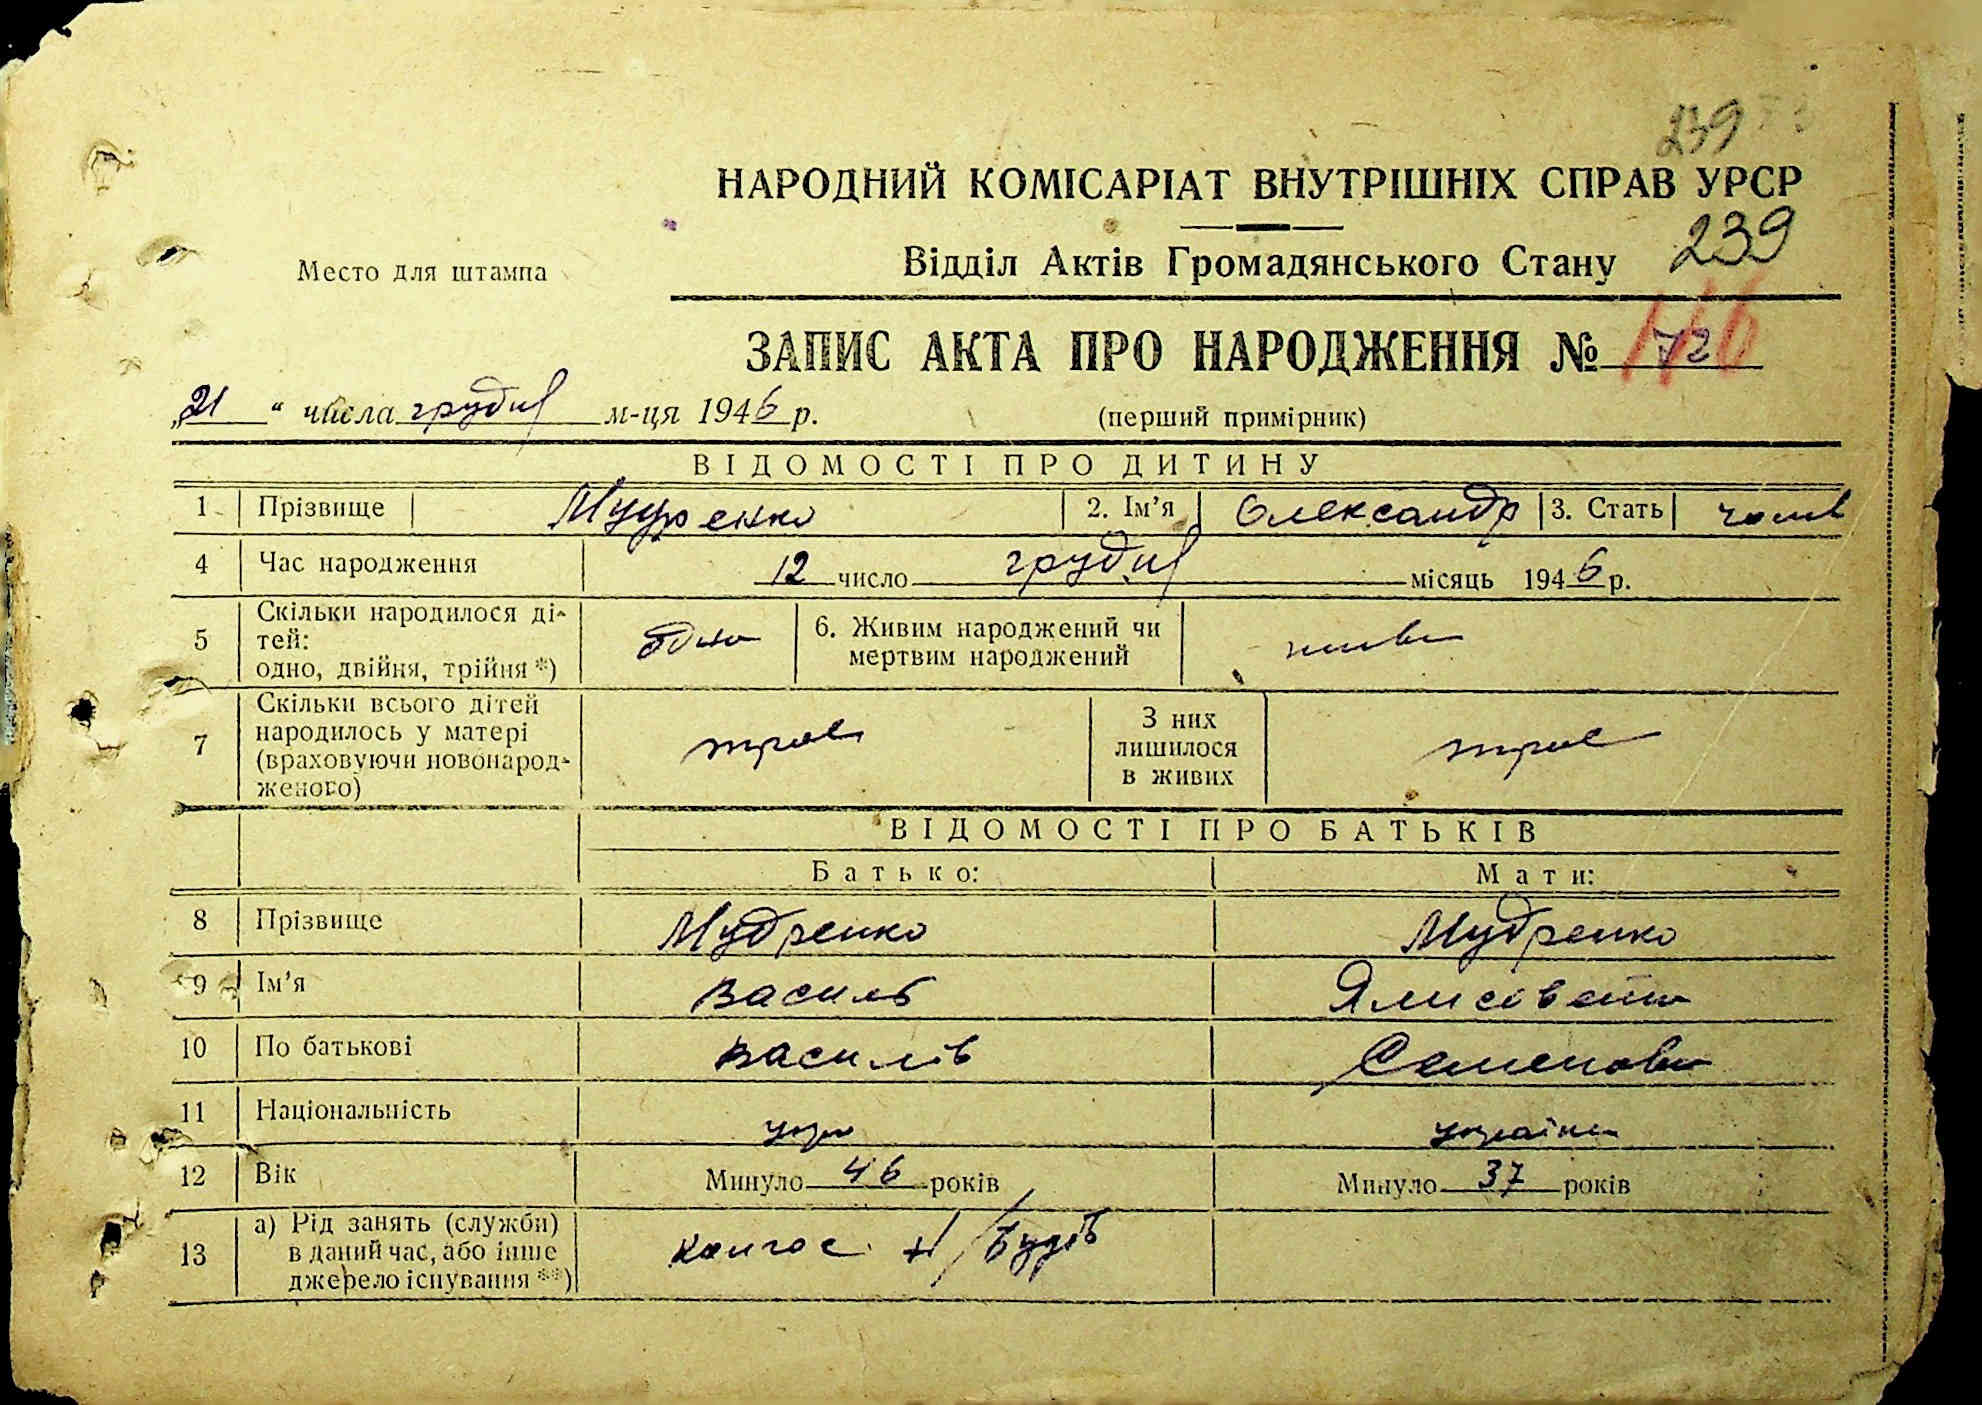 239
НАРОДНИЙ КОМІСАРІАТ ВНУТРІШНІХ СПРАВ УРСР
239
Место для штампа
Відділ Актів Громадянського Стану
116
ЗАПИС АКТА ПРО НАРОДЖЕННЯ № 72
„21“ числа грудня м-ця 1946 р. (перший примірник)
ВІДОМОСТІ ПРО ДИТИНУ
1 Прізвище Мудренко 2. Ім'я Олександр 3. Стать чолов
4 Час народження 12 число грудня місяць 1946 р.
5 Скільки народилося ді-
тей:
одно, двійня, трійня *) одно
6. Живим народжений чи
мертвим народжений живим
7 Скільки всього дітей
народилось у матері
(враховуючи новонарод-
женого) троє
З них
лишилося
в живих троє
ВІДОМОСТІ ПРО БАТЬКІВ
Батько: Мати:
8 Прізвище Мудренко Мудренко
9 Ім'я Василь Ялисовета
10 По батькові Василів Семенова
11 Національність укр українка
12 Вік Минуло 46 років Минуло 37 років
13 а) Рід занять (служби)
в даний час, або інше
джерело існування **) колгос